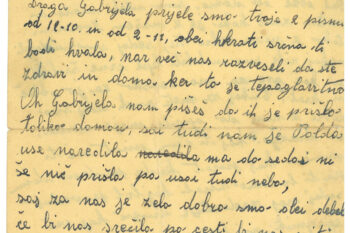 Draga Gabrijela prijele smo tvoje 2 pismu
od 18-10. in od 2-11, obei hkrati srčna ti
bodi hvala, nar več nas razveseli da ste
zdravi in doma ker to je tepoglavitno
Oh Gabrijela nam pišeš da ih je prišlo
toliko domou, sai tudi nam je Polda
use naredila naredila ma do sedai ni
še nič prišla pa usai tudi neba,
saj za nas je zelo dobro smo obei debele
če bi nas srečila po cesti bi nas